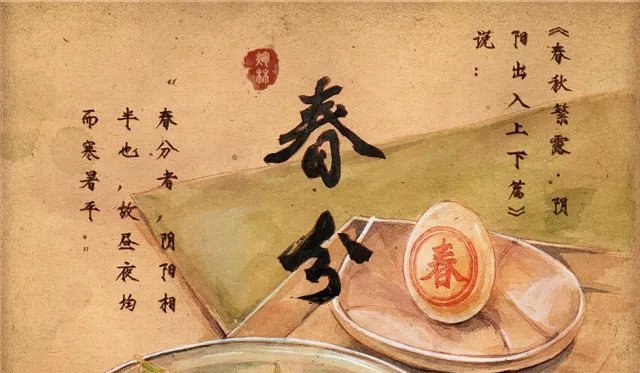 《春秋繁露·阴
阳出入上下篇》
说：
春分
“春分者，阴阳相
半也，故昼夜均
而寒暑平。”
春